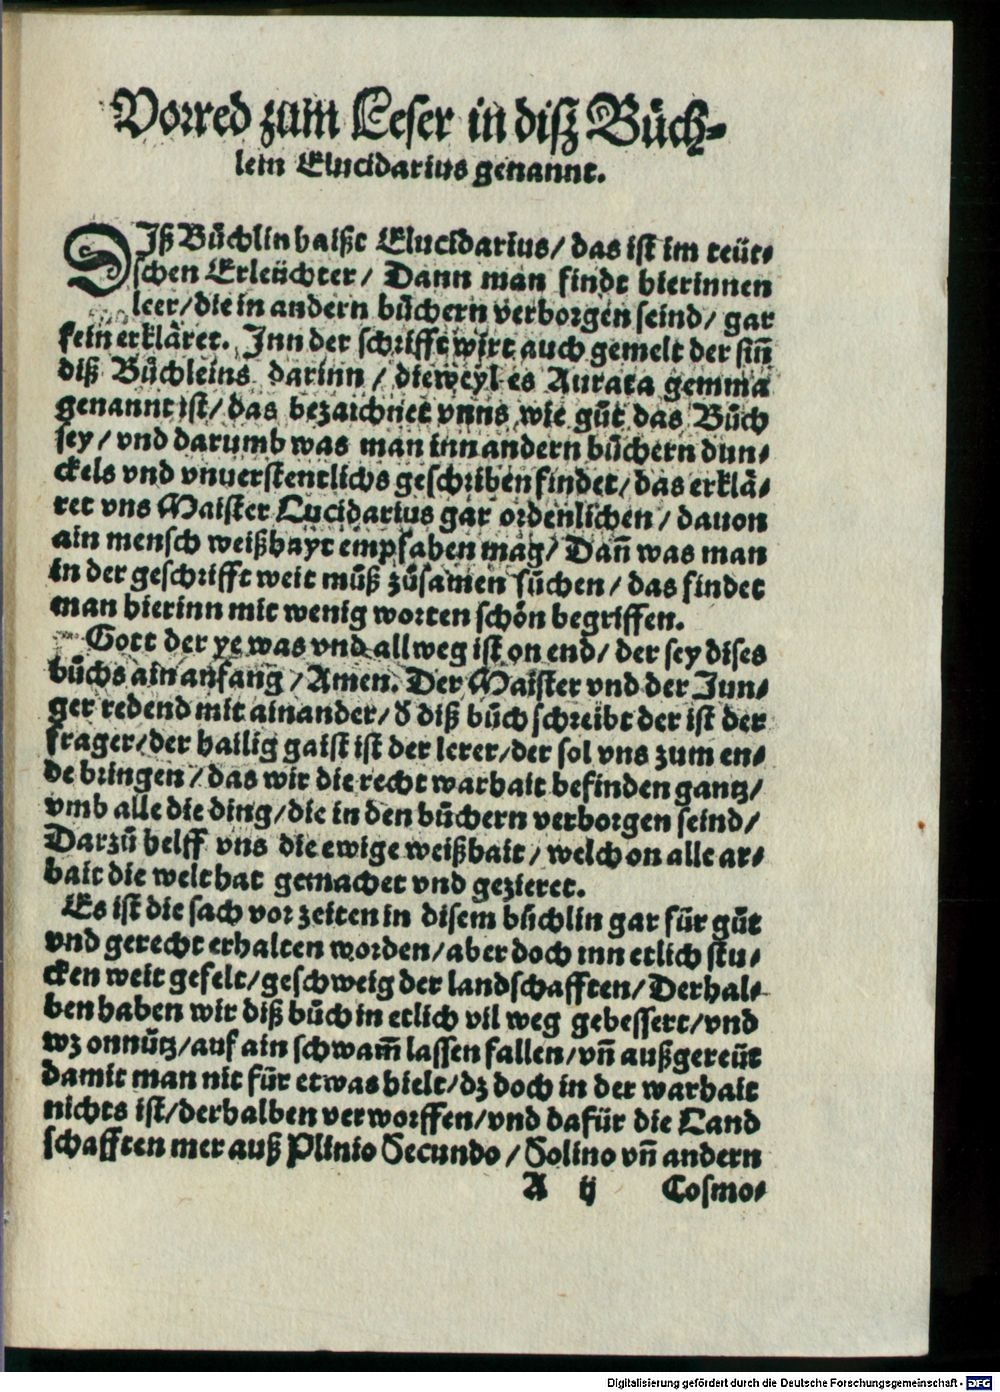 Vorred zum Leser in diß Büch-
lein Elucidarius genannt.
DIß Bůchlin haißt Elucidarius/ das ist im teüt-
schen Erleüchter/ Dann man findt hierinnen
leer/die in andern bůchern verborgen seind/ gar
fein erkläret. Inn der schrifft wirt auch gemelt der sin̄
diß Bůchleins darinn/ dieweyl es Aurata gemma
genannt ist/ das bezaichnet vnns wie gůt das Bůch
sey/ vnd darumb was man inn andern bůchern dun-
ckels vnd vnuerstentlichs geschriben findet/ das erklä-
ret vns Maister Lucidarius gar ordenlichen/ dauon
ain mensch weißhayt empfahen mag/ Dan̄ was man
in der geschrifft weit můß zůsamen sůchen/ das findet
man hierinn mit wenig worten schön begriffen.
Gott der ye was vnd allweg ist on end/ der sey dises
bůchs ain anfang/ Amen. Der Maister vnd der Jun-
ger redend mit ainander/ d̕ diß bůch schreibt der ist der
frager/der hailig gaist ist der lerer/der sol vns zum en-
de bringen/ das wir die recht warhait befinden gantz/
vmb alle die ding/die in den bůchern verborgen seind/
Darzů helff vns die ewige weißhait/ welch on alle ar-
bait die welt hat gemachet vnd gezieret.
Es ist die sach vor zeiten in disem bůchlin gar für gůt
vnd gerecht erhalten worden/aber doch inn etlich stu-
cken weit gefelt/geschweig der landschafften/ Derhal-
ben haben wir diß bůch in etlich vil weg gebessert/vnd
wz onnütz/auf ain schwam̄ lassen fallen/vn̄ außgereüt
damit man nit für etwas hielt/dz doch in der warhait
nichts ist/derhalben verworffen/vnd dafür die Land
schafften mer auß Plinio Secundo/ Solino vn̄ andern
A ij Cosmo-
Digitalisierung gefördert durch die Deutsche Forschungsgemeinschaft - DFG